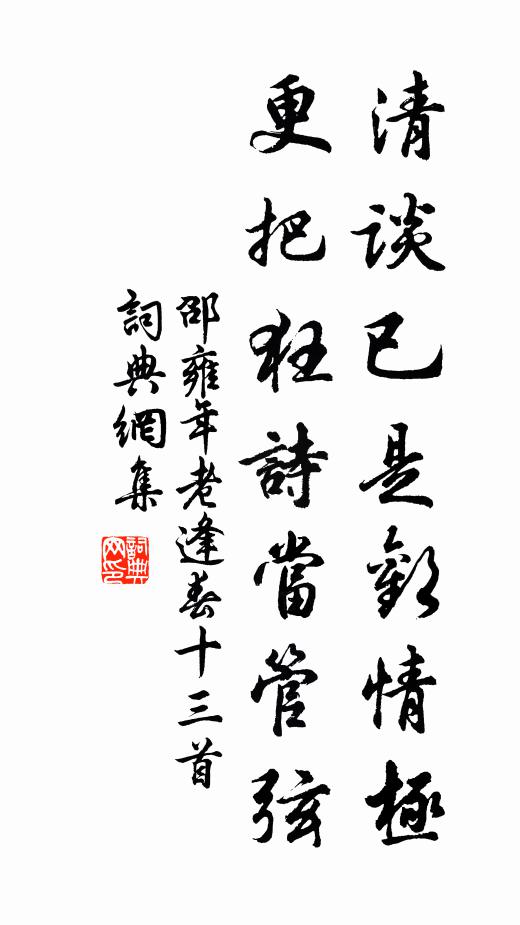 清談已是歡情極
更把狂詩當管弦
邵雍年老逢春十三首
詞典網集
詞典網印